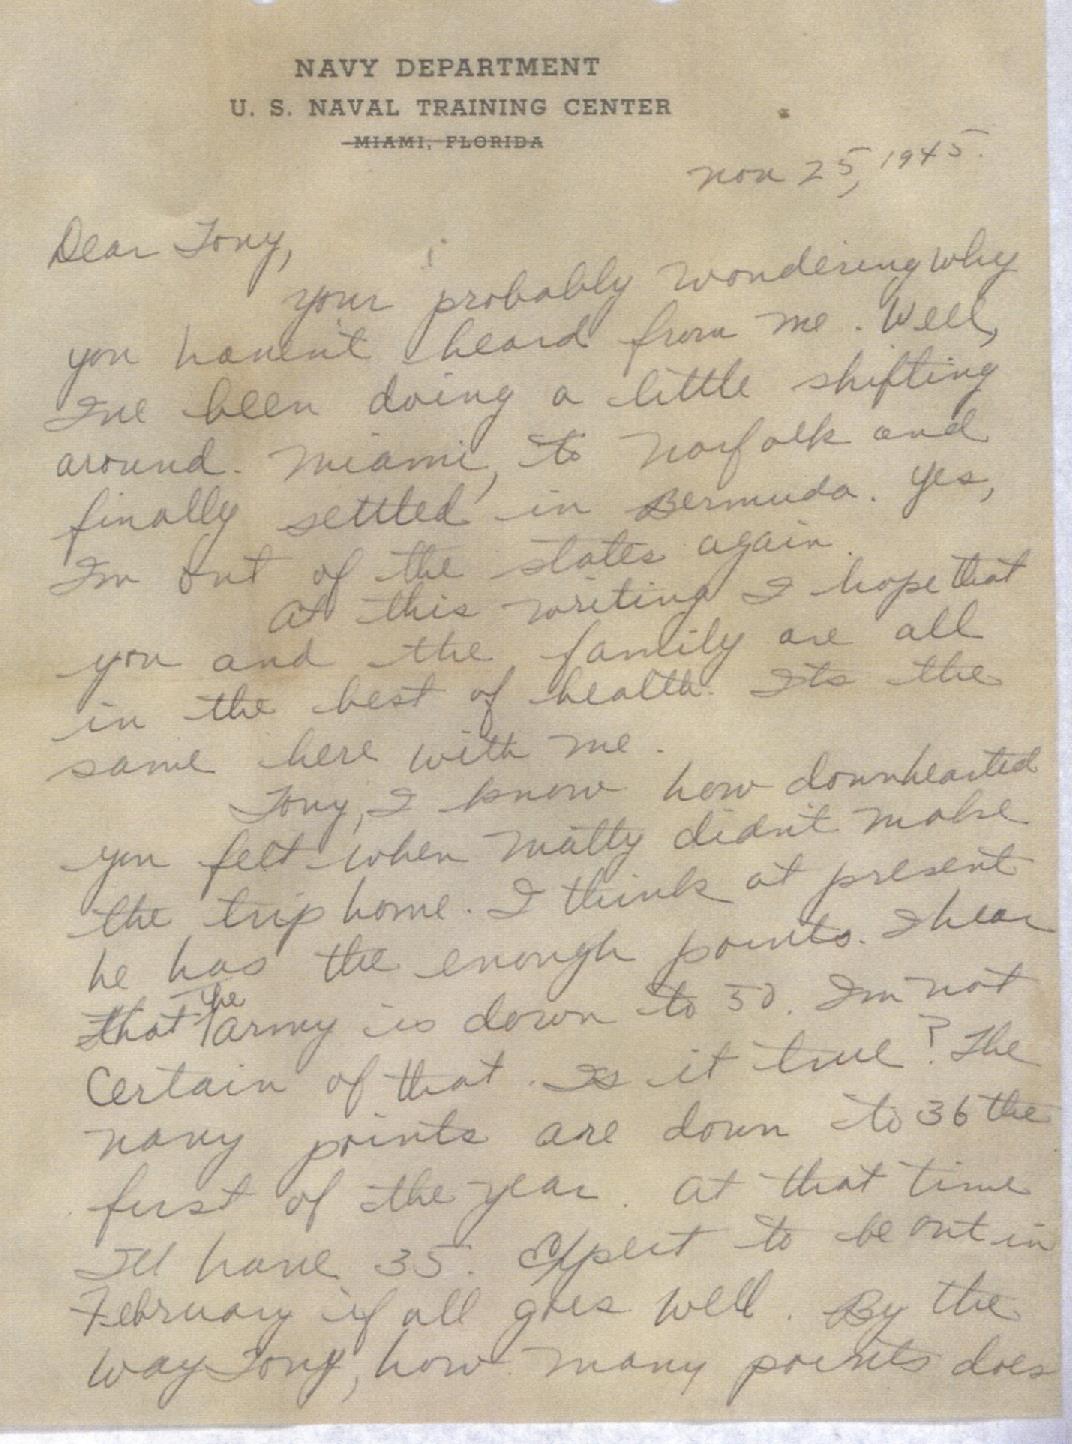 NAVY DEPARTMENT
U. S. NAVAL TRAINING CENTER
MIAMI, FLORIDA
Nov 25, 1945.
Dear Tony,
Your probably wondering why
you haven't heard from me. Well,
I've been doing a little shifting
around. Miami, to Norfolk and
finally settled in Bermuda. Yes,
I'm out of the states again.
At this writing I hope that
you and the family are all
in the best of health. Its the
same here with me.
Tony, I know how downhearted
you felt when Matty didn't make
the trip home. I think at present
he has the enough points. I hear
that the army is down to 50. I'm not
certain of that. Is it true? The
navy points are down to 36 the
first of the year. At that time
I'll have 35. Expect to be out in
February if all goes well. By the
way Tony, how many points does